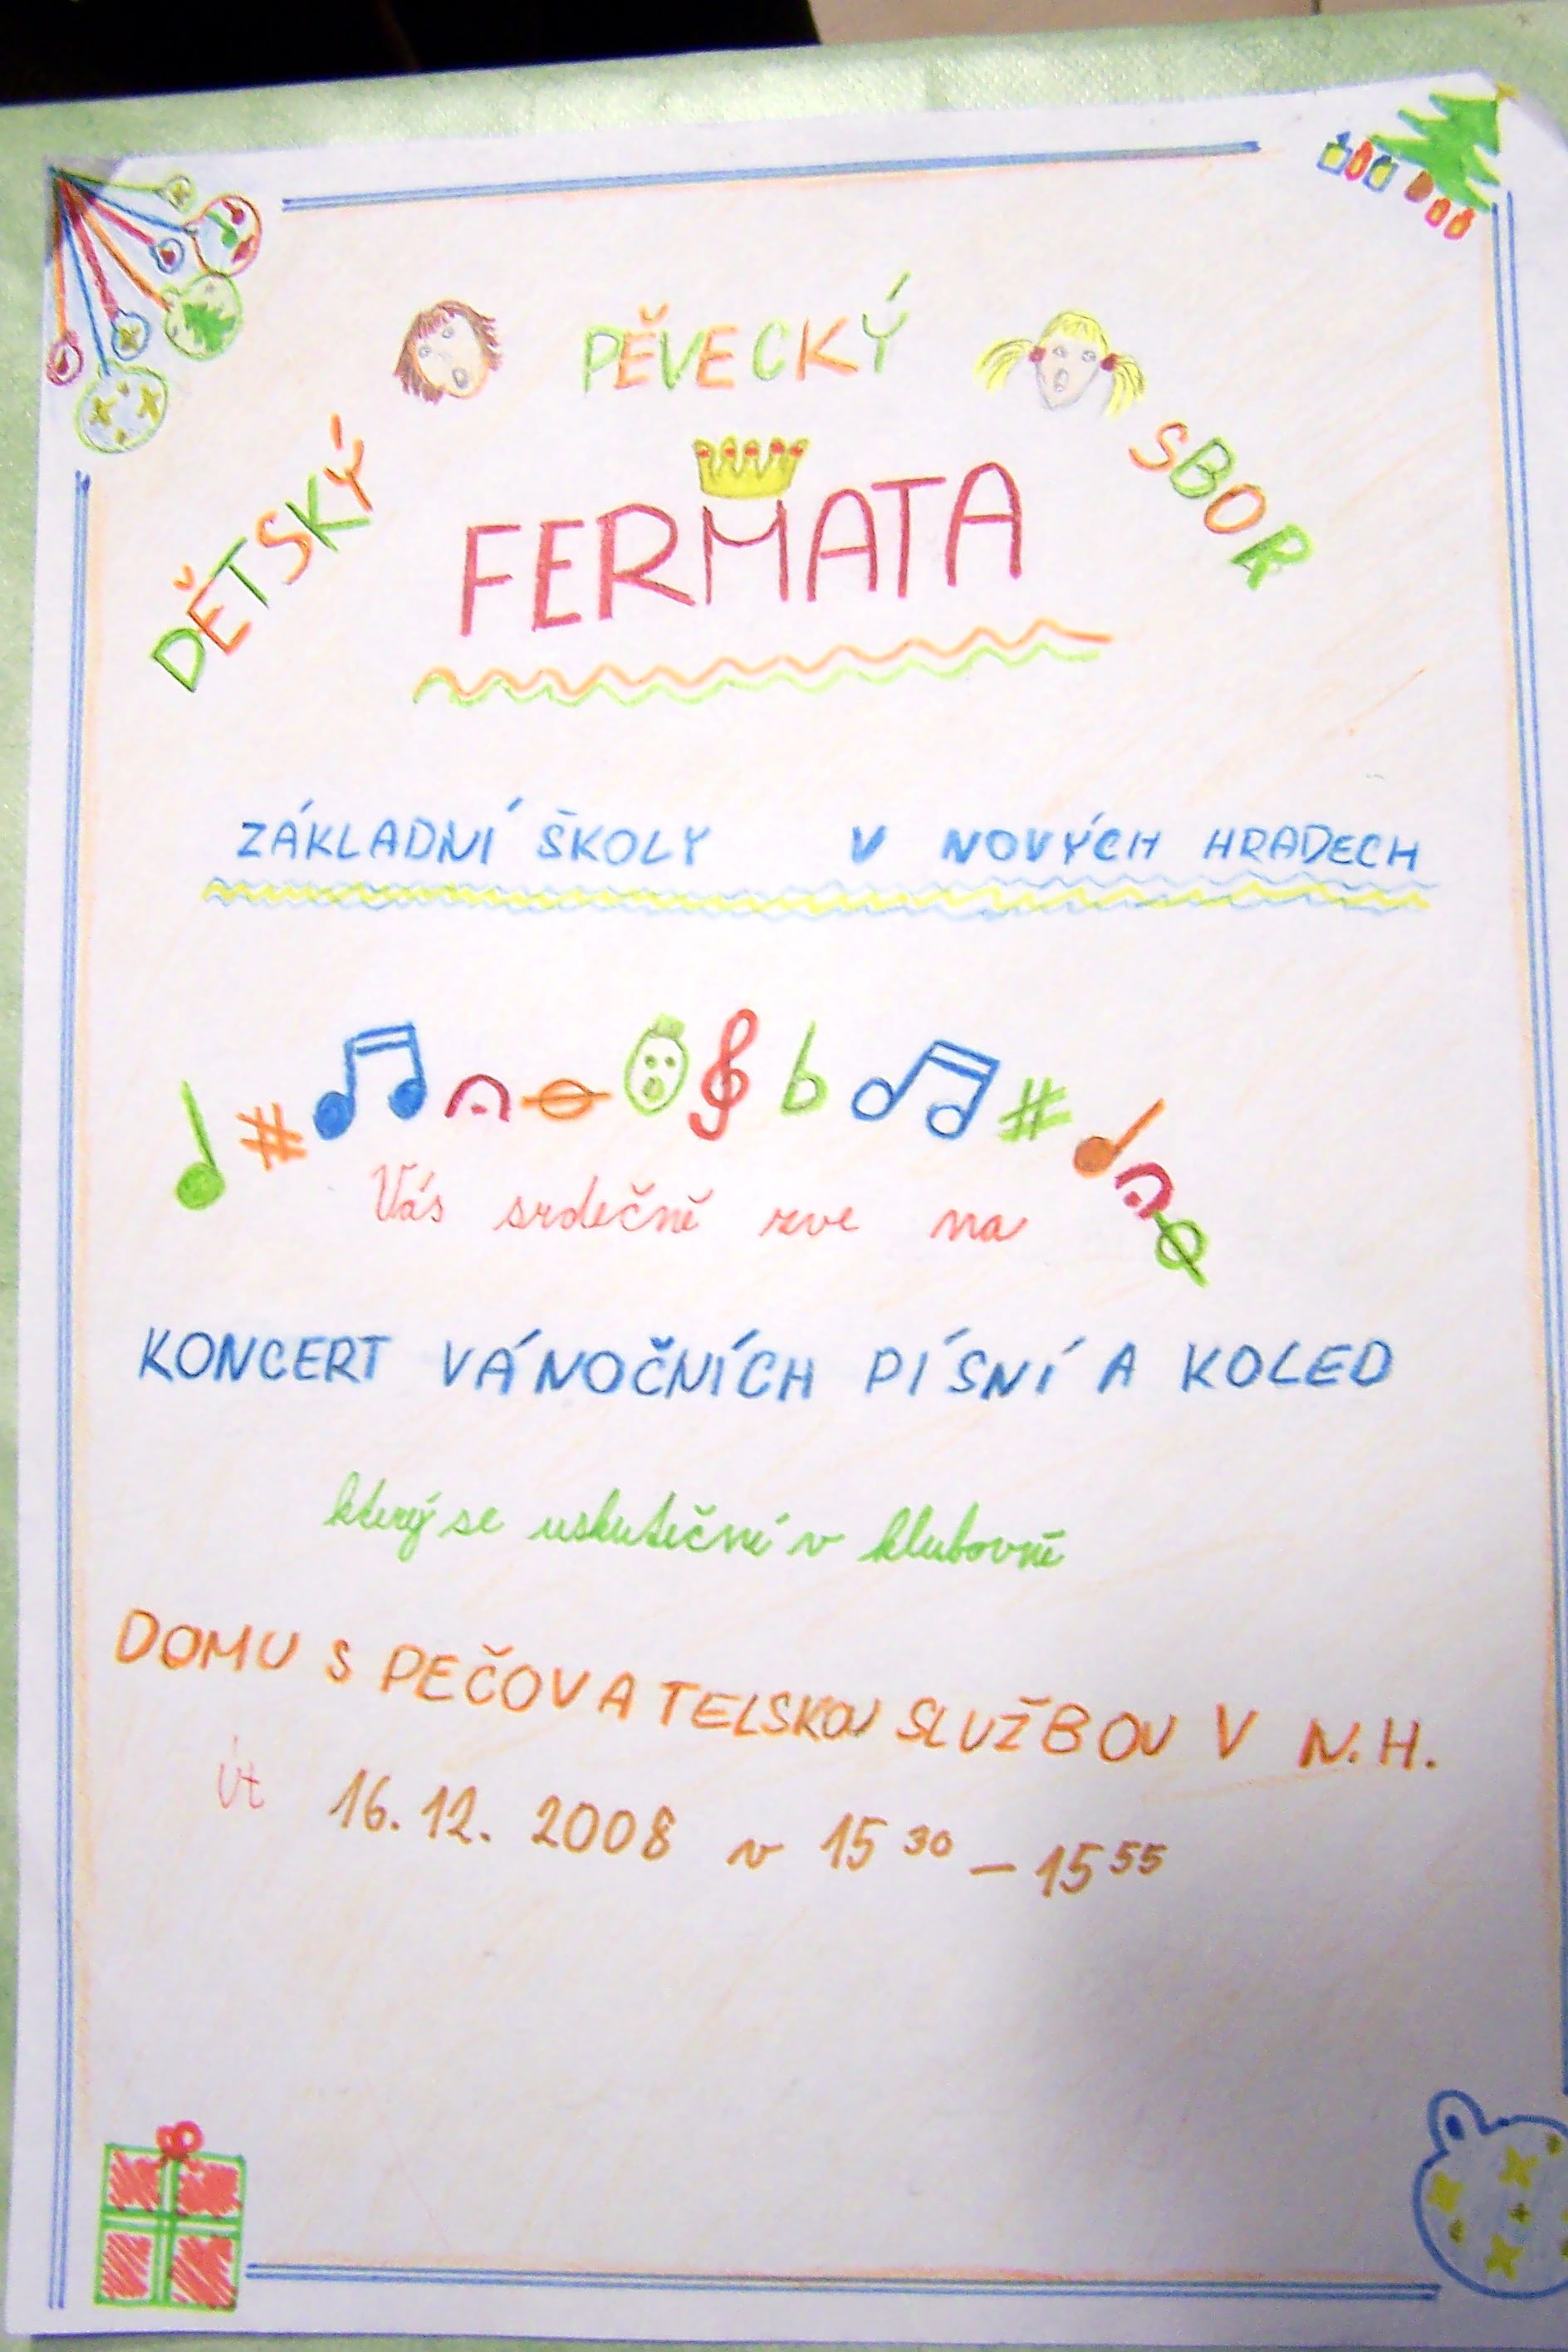 DĚTSKÝ PĚVECKÝ SBOR
FERMATA
ZÁKLADNÍ ŠKOLY V NOVÝCH HRADECH
Vás srdečně zve na
KONCERT VÁNOČNÍCH PÍSNÍ A KOLED
který se uskuteční v klubovně
DOMU S PEČOVATELSKOU SLUŽBOU V N.H.
Út 16.12. 2008 v 15³⁰ – 15⁵⁵